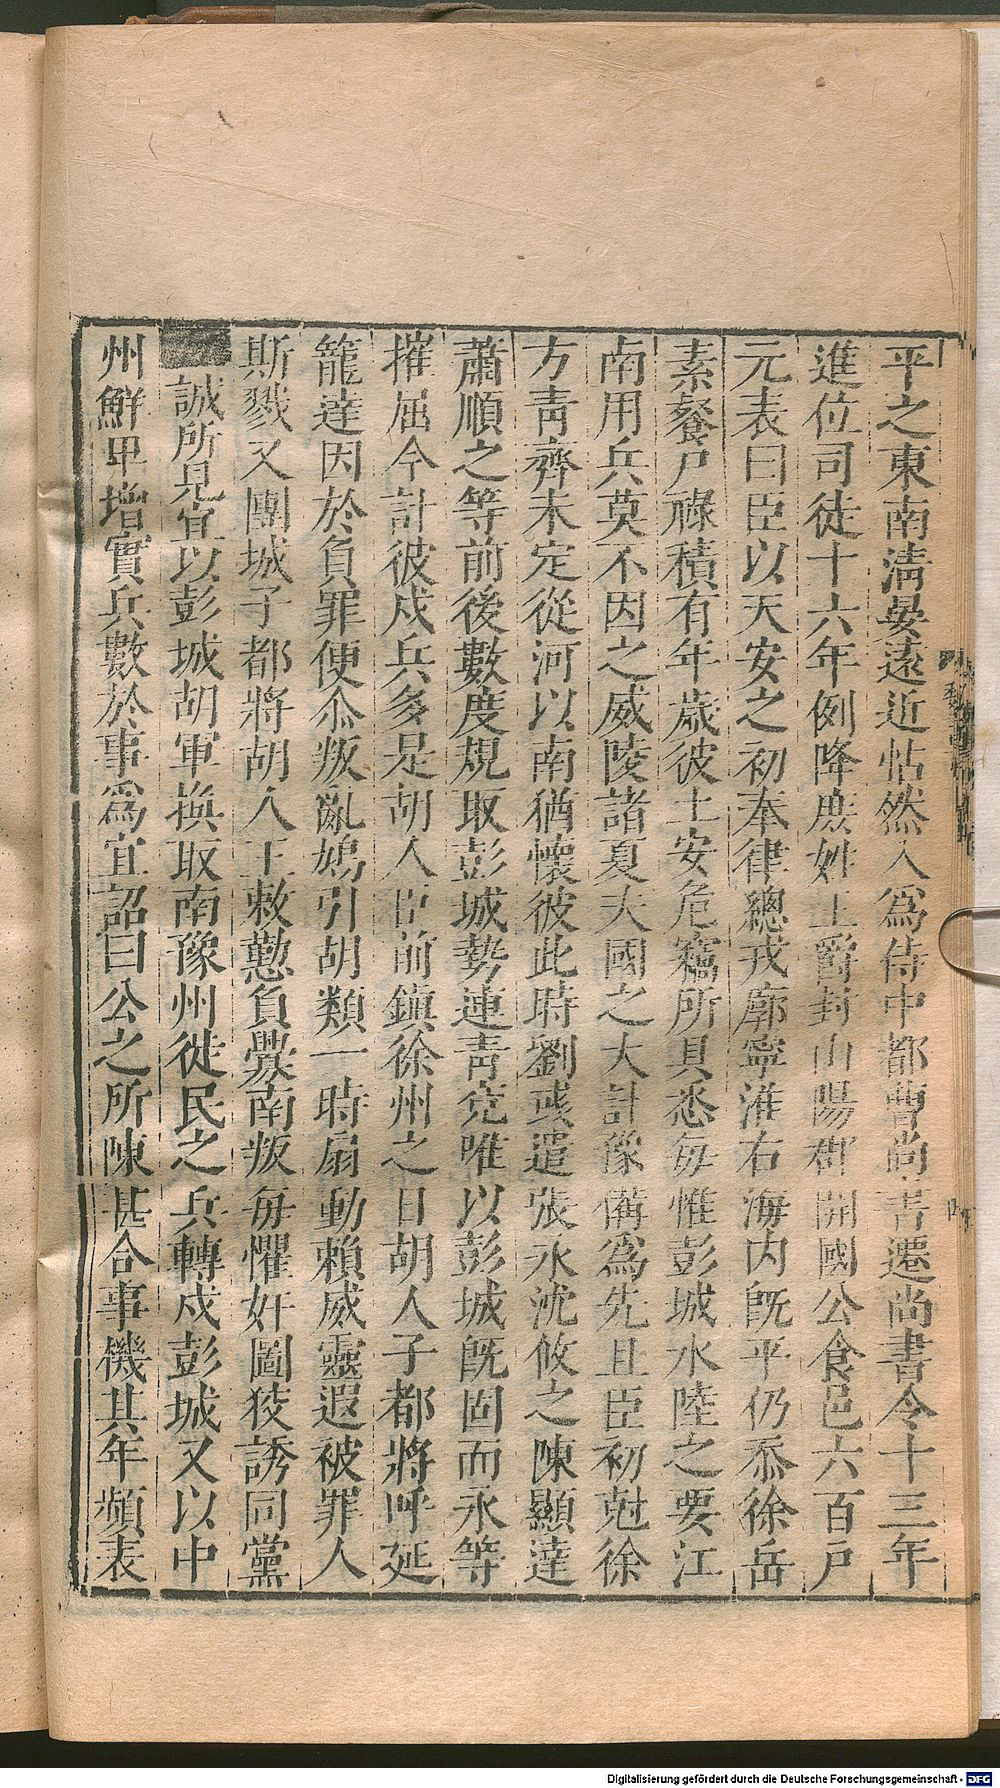 平之東南淸晏遠近帖然入爲侍中都曹尚書遷尚書令十三年
進位司徒十六年例降庶姓王爵封山陽郡開國公食邑六百戶
元表曰臣以天安之初奉律總戎廓寧淮右海内旣平仍忝徐岳
素餐尸祿積有年歲彼土安危竊所具悉每惟彭城水陸之要江
南用兵莫不因之威陵諸夏夫國之大計豫備爲先且臣初尅徐
方靑齊未定從河以南猶懷彼此時劉彧遣張永沈攸之陳顯達
蕭順之等前後數度規取彭城勢連靑兖唯以彭城旣固而永等
摧屈今計彼戍兵多是胡人臣前鎭徐州之日胡人子都將呼延
籠達因於負罪便尒叛亂鳩引胡類一時扇動賴威靈遐被罪人
斯戮又團城子都將胡人王敕懃負釁南叛每懼奸圖狡誘同黨
誠所見宜以彭城胡軍換取南豫州徙民之兵轉戍彭城又以中
州鮮卑增實兵數於事爲宜詔曰公之所陳甚合事機其年頻表
Digitalisierung gefördert durch die Deutsche Forschungsgemeinschaft - DFG